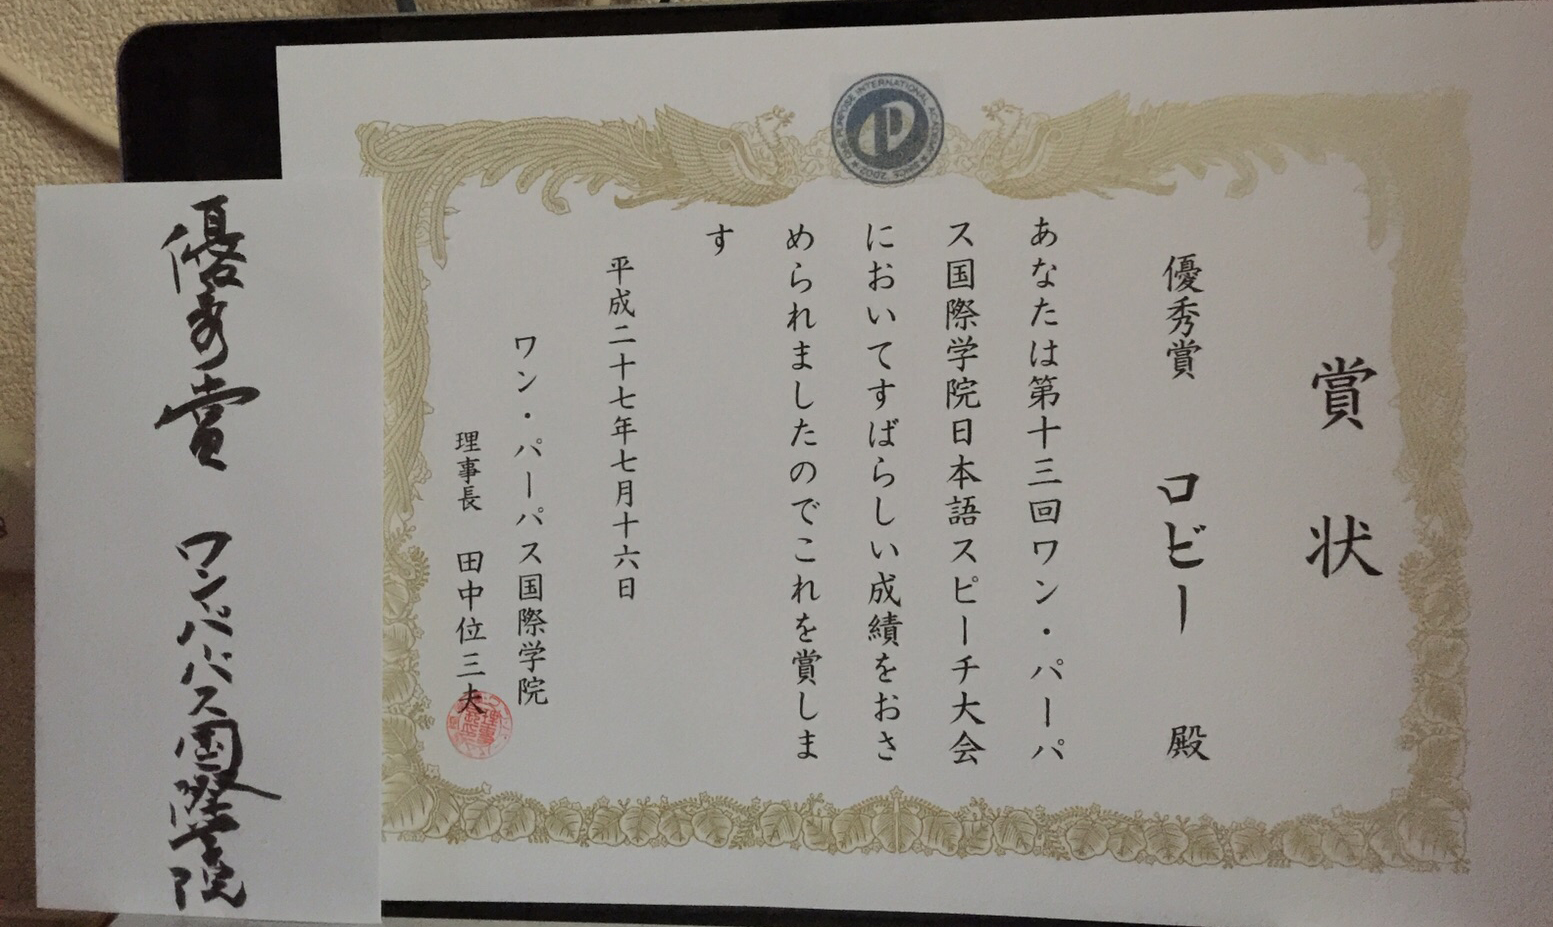 賞状
優秀賞 ロビー 殿
あなたは第十三回ワン・パーパ
ス国際学院日本語スピーチ大会
においてすばらしい成績をおさ
められましたのでこれを賞しま
す
平成二十七年七月十六日
ワン・パーパス国際学院
理事長 田中位三夫
優秀賞 ワンパーパス国際学院